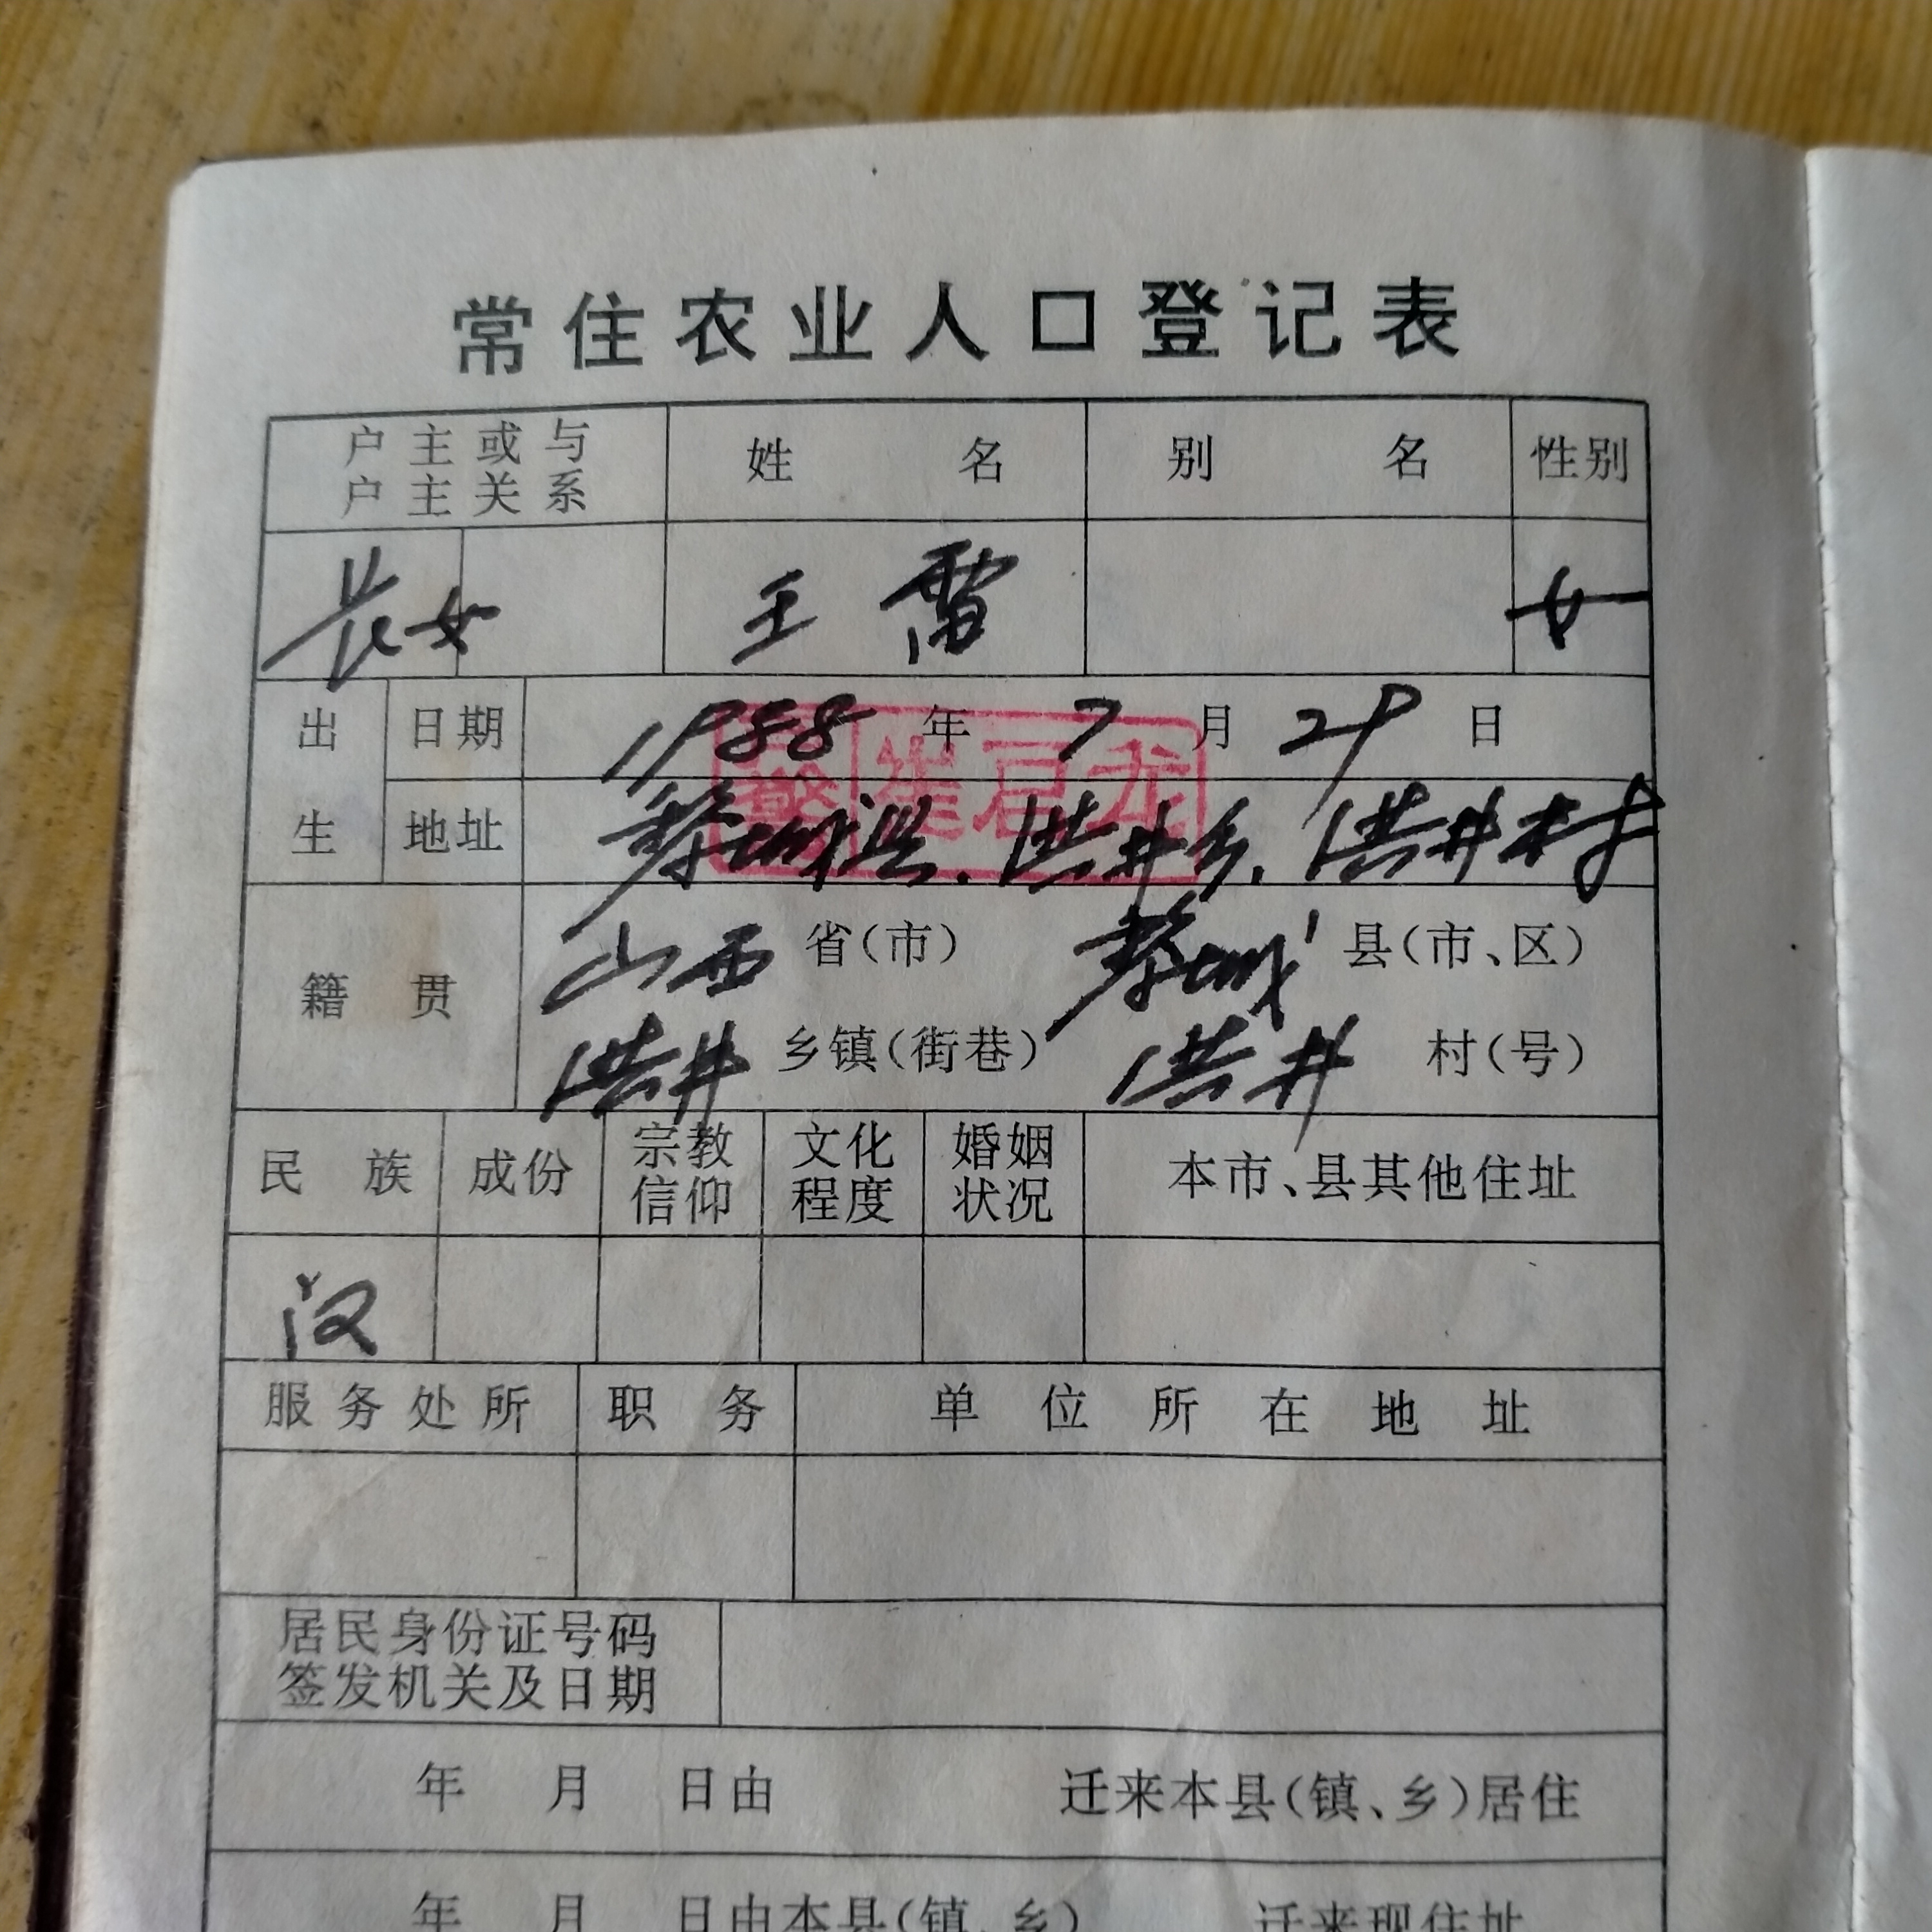 常住农业人口登记表
户主或与户主关系 姓名 别名 性别
长女 王雷 女
出生 日期 1988年7月29日
地址 黎城县.洪井乡.洪井村
籍贯 山西省(市) 黎城县(市、区)
洪井乡镇(街巷) 洪井村(号)
民族 成份 宗教信仰 文化程度 婚姻状况 本市、县其他住址
汉
服务处所 职务 单位所在地址
居民身份证号码
签发机关及日期
年 月 日由 迁来本县(镇、乡)居住
年 月 日由本县(镇、乡) 迁来现住址